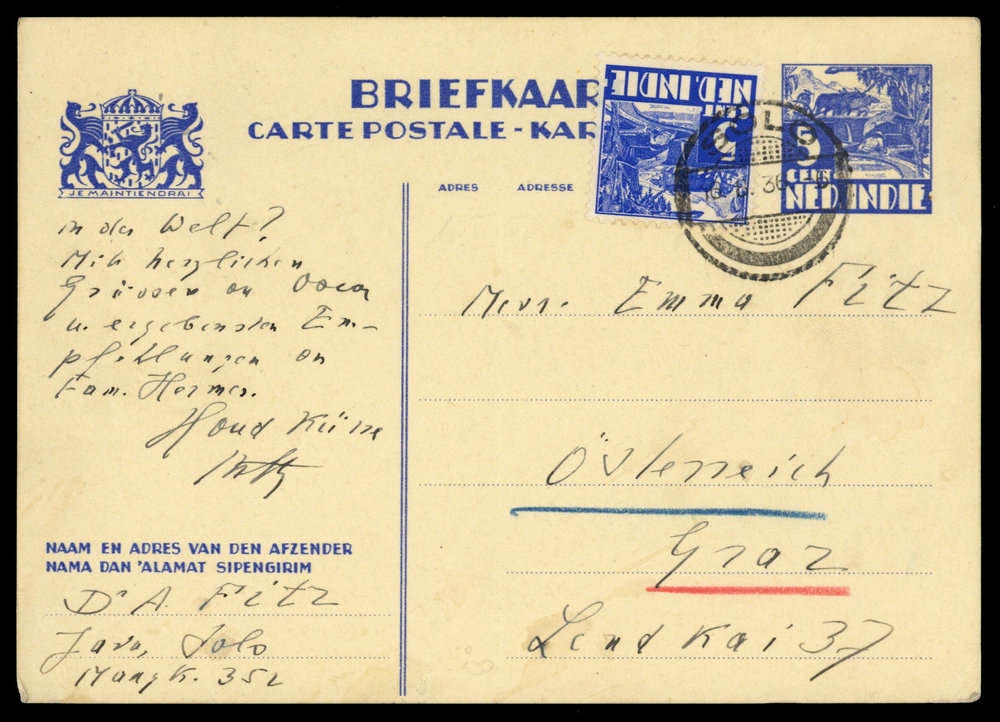 BRIEFKAAR
CARTE POSTALE - KAR
JE MAINTIENDRAI
ADRES ADRESSE
NED. INDIE
5
CENT
NED. INDIE
SOLO
36
in der Welt?
Mit herzlichen
Grüssen an
u. ergebensten Em-
pfehlungen an
Fam. Hermes.
Hand Küsse
Merr. Emma Fitz
Österreich
Graz
Lend Kai 37
NAAM EN ADRES VAN DEN AFZENDER
NAMA DAN 'ALAMAT SIPENGIRIM
Dr A. Fitz
Java, Solo
Mangk. 352